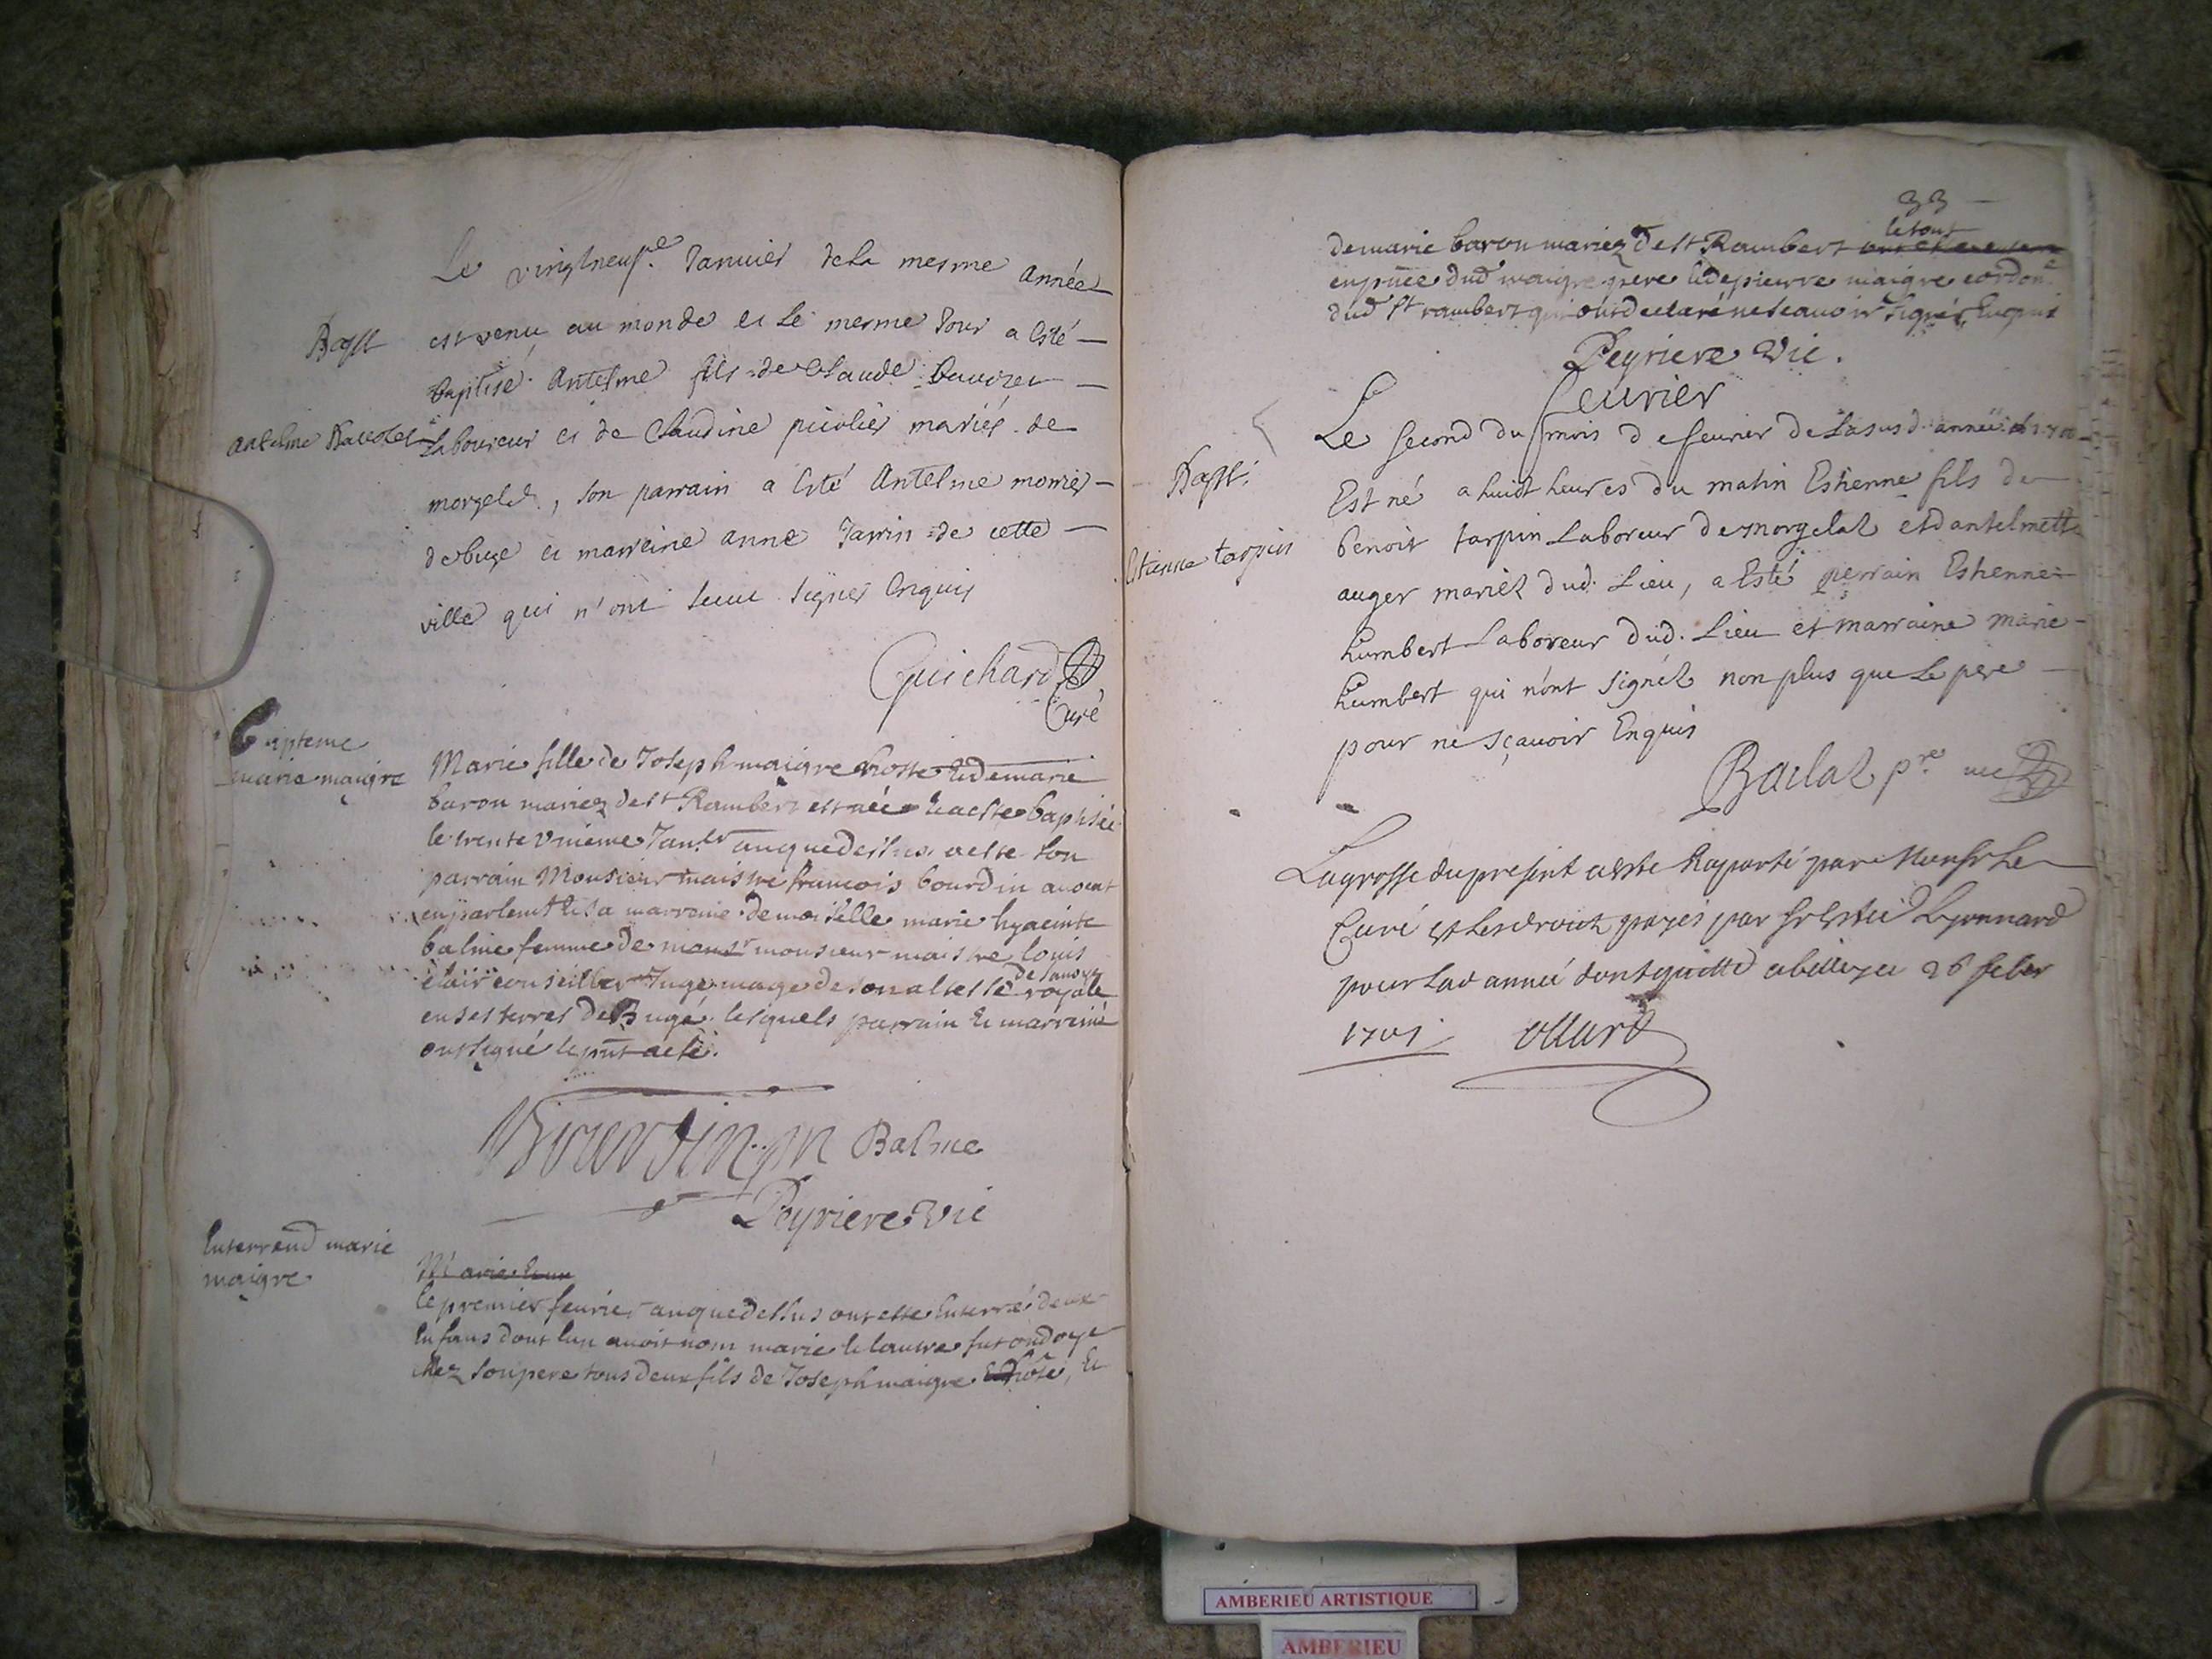 Le vingtneufe. Janvier de la mesme année
Bapt
est venu au monde et le mesme Jour a esté
baptisé Antelme fils de Claude
Antelme
Laboureur et de Claudine mariés de
morgelat, son parrain a esté Antelme monier
de buge et marreine anne Jarrin de cette
ville qui n'ont sceu signer Enquis
Guichard
Curé
bapteme
marie maigre
Marie fille de Joseph maigre hoste et de marie
baron mariez de st Rambert est née et a este baptisée
le trente unieme Janer an que dessus a este son
parrain Monsieur maistre francois bourdin avocat
en parlemt et sa marraine demoiselle marie hyacinte
balme femme de monsr monsieur maistre louis
conseiller Juge mage de son altesse royale
de savoye
en ses terres de Bugé. lesquels parrain et marraine
ont signé le pnt acte.
Bourdin Balme
Peyriere Vic
Enterremt marie
maigre
Marie
le premier feurier an que dessus ont este Enterré deux
Enfans dont lun avoit nom marie et lautre fut ondoye
chez son pere tous deux fils de Joseph maigre hoste, et
33
de marie baron mariez de st Rambert
le tout
en pnce dud maigre pere et de pierre maigre cordonr
dud st rambert qui ont declaré ne scavoir signer, Enquis
Peyriere Vic.
feurier
Le second du mois de feurier de la susd. année
Bapt.
Est né a huict heures du matin Estienne fils de
Etienne tarpin
benoit tarpin Laboreur de morgelat et dantelmette
auger mariés dud. Lieu, a Esté perrain Estienne
humbert Laboreur dud. Lieu et marraine marie
humbert qui n'ont signéz non plus que Le pere
pour ne sçavoir Enquis
Baclaz pre
La grosse du present aeste Raporté par Monsr Le
Curé et les droits payés par Sr Lyonnard
pour lad année dont quitte a belley ce 26 feber
1701 ollard
AMBERIEU ARTISTIQUE
AMBERIEU